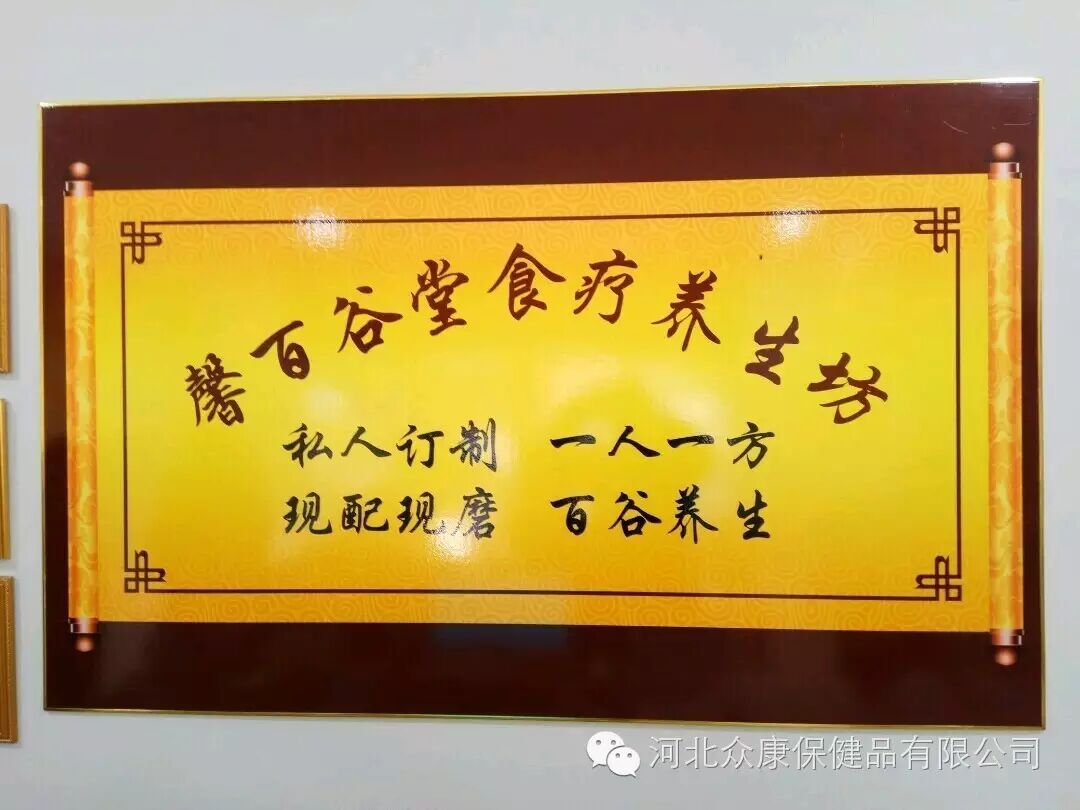 馨百谷堂食疗养生坊
私人订制 一人一方
现配现磨 百谷养生
河北众康保健品有限公司